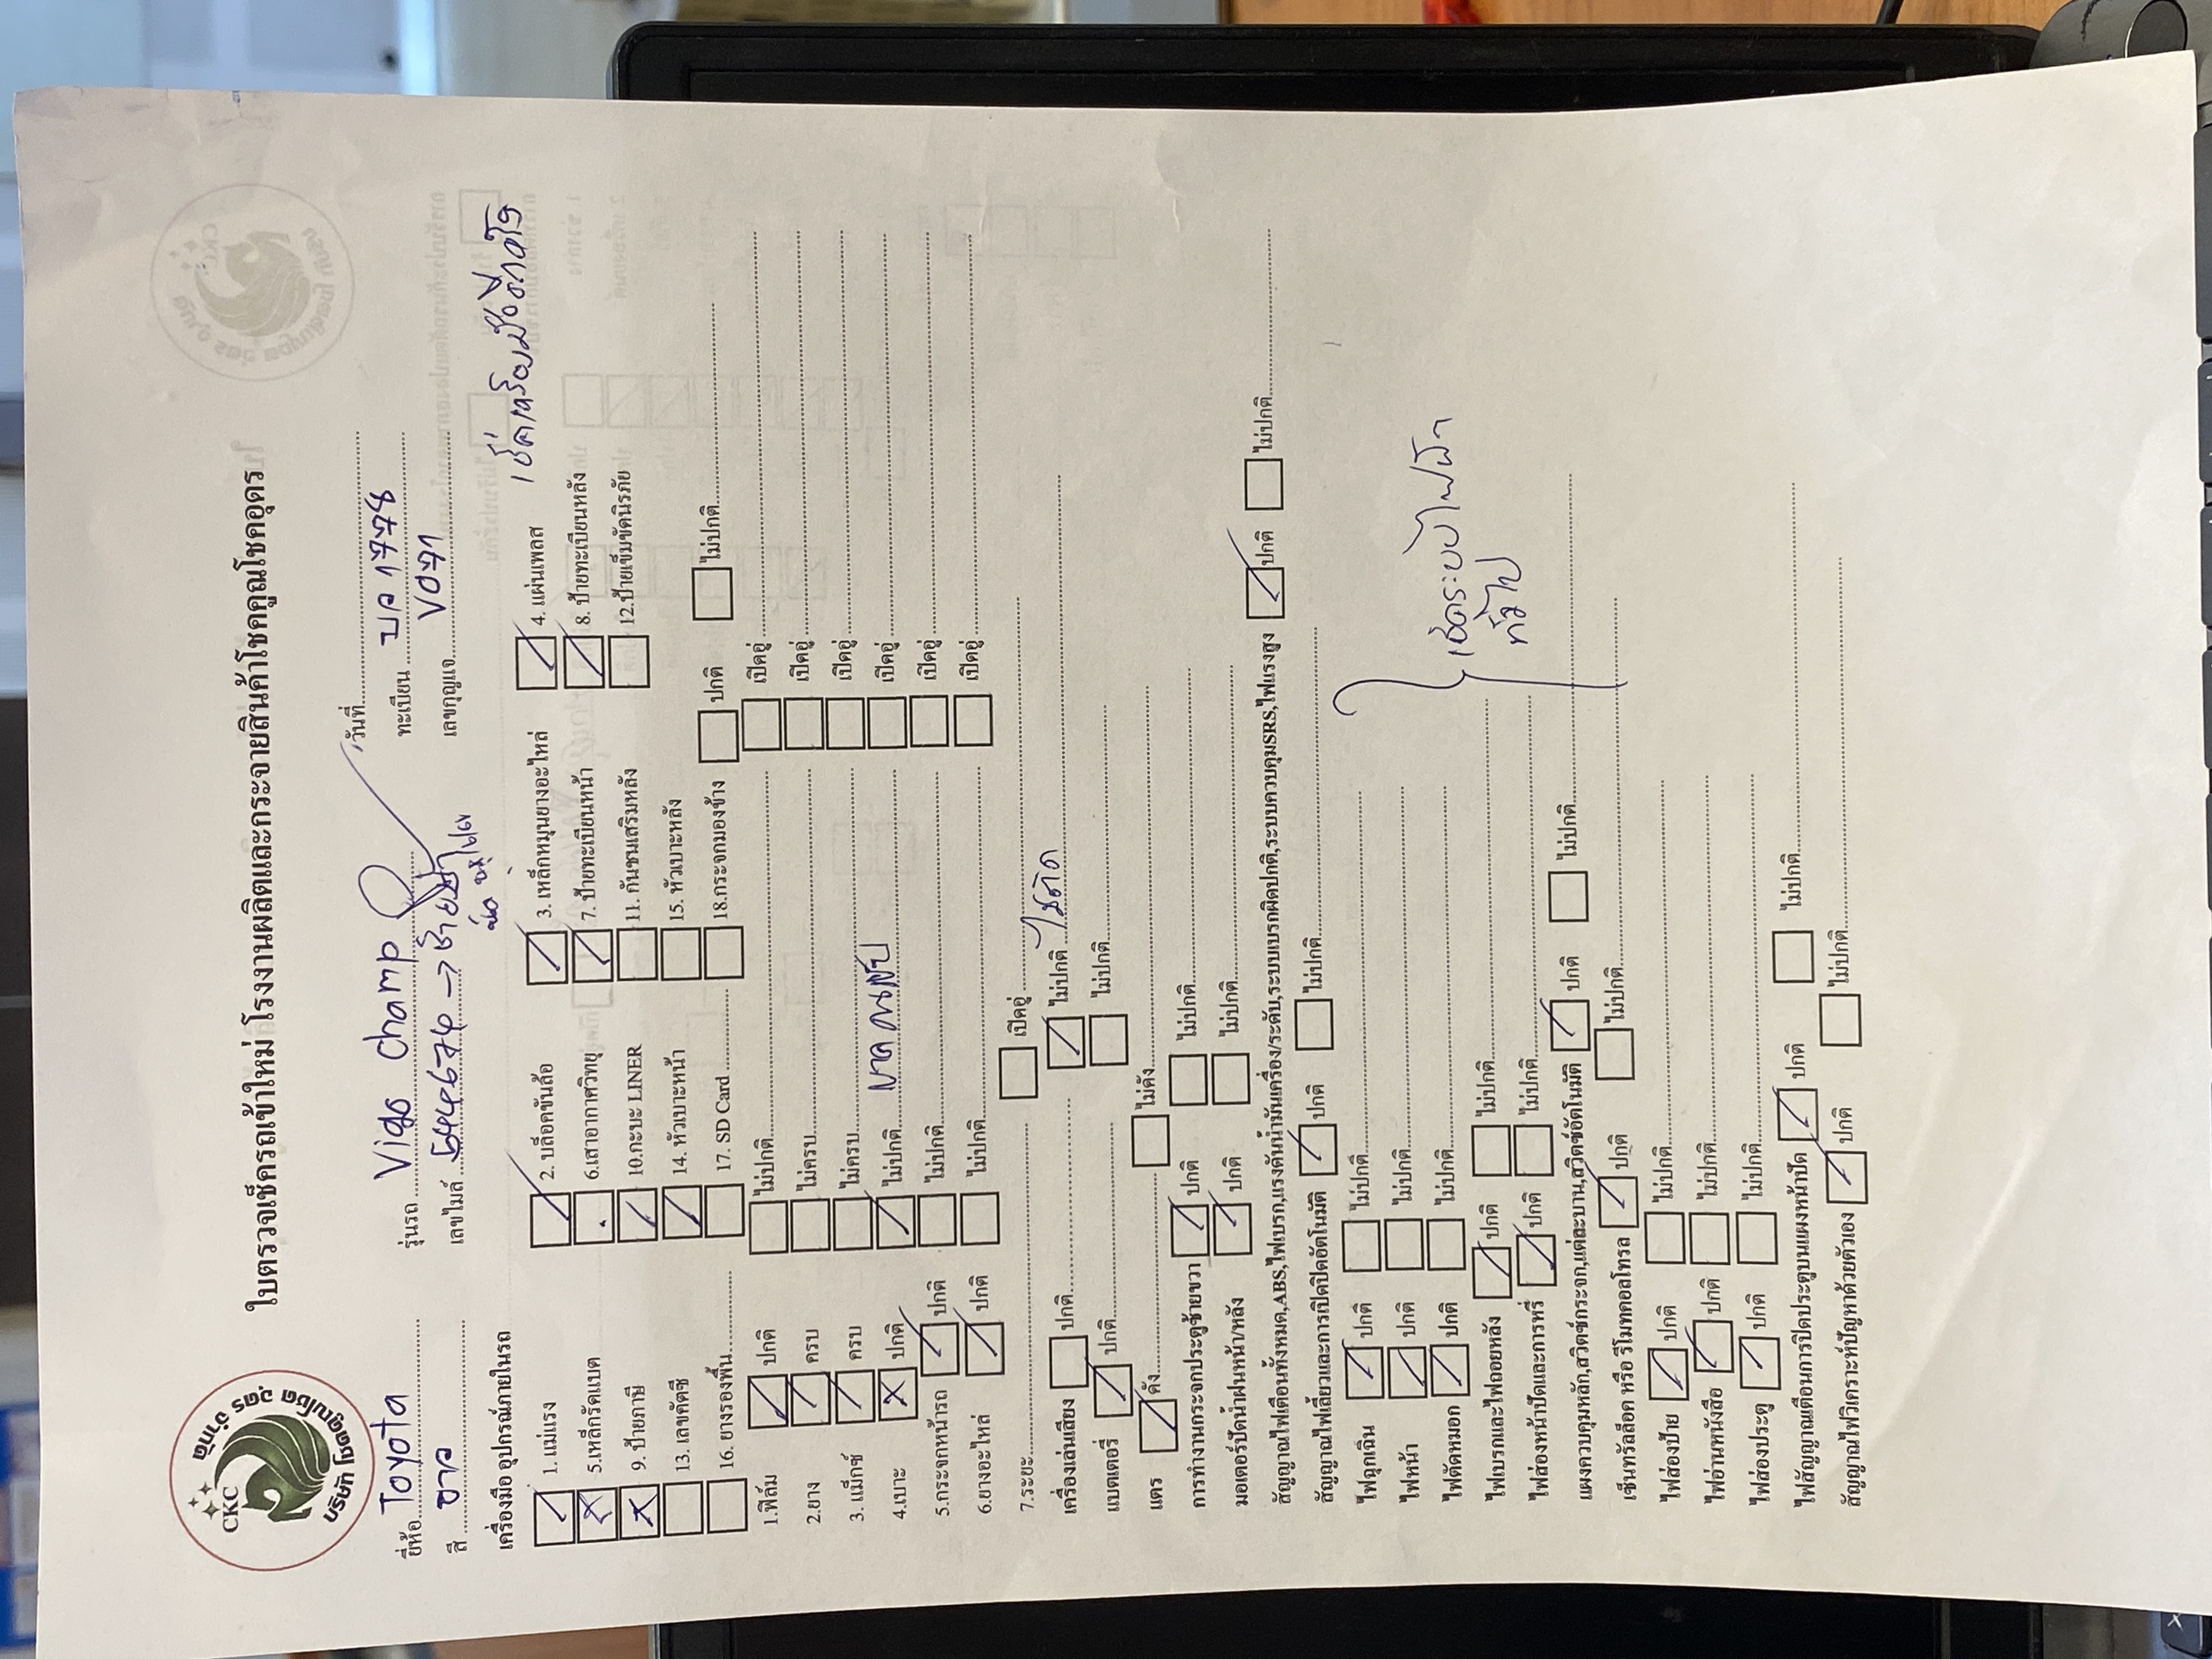 CKC
บริษัท โชคคูณโชค อุดร จำกัด
ใบตรวจเช็ครถเข้าใหม่ โรงงานผลิตและกระจายสินค้าโชคคูณโชคอุดร
ยี่ห้อ Toyota รุ่นรถ Vigo Champ วันที่
สี ขาว เลขไมล์ ทะเบียน บล 1778
เลขกุญแจ V071
เครื่องมือ อุปกรณ์ภายในรถ
1. แม่แรง 2. บล็อคขันล้อ 3. เหล็กหมุนยางอะไหล่ 4. แผ่นเพลส
5.เหล็กรัดแบต 6.เสาอากาศวิทยุ 7. ป้ายทะเบียนหน้า 8. ป้ายทะเบียนหลัง
9. ป้ายภาษี 10.กะบะ LINER 11. กันชนเสริมหลัง 12.ป้ายเข็มขัดนิรภัย
13. เลขคัดซี 14. หัวเบาะหน้า 15. หัวเบาะหลัง
16. ยางรองพื้น 17. SD Card 18.กระจกมองข้าง ปกติ ไม่ปกติ
1.ฟิล์ม ปกติ ไม่ปกติ เปิดอู่
2.ยาง ครบ ไม่ครบ เปิดอู่
3. แม็กซ์ ครบ ไม่ครบ เปิดอู่
4.เบาะ ปกติ ไม่ปกติ ขาด เปิดอู่
5.กระจกหน้ารถ ปกติ ไม่ปกติ เปิดอู่
6.ยางอะไหล่ ปกติ ไม่ปกติ เปิดอู่
7.ระยะ เปิดอู่
เครื่องเล่นเสียง ปกติ ไม่ปกติ ไม่ติด
แบตเตอรี่ ปกติ ไม่ปกติ
แตร ดัง ไม่ดัง
การทำงานกระจกประตูซ้ายขวา ปกติ ไม่ปกติ
มอเตอร์ปัดน้ำฝนหน้า/หลัง ปกติ ไม่ปกติ
สัญญาณไฟเตือนทั้งหมด,ABS,ไฟเบรก,แรงดันน้ำมันเครื่อง/ระดับ,ระบบเบรกผิดปกติ,ระบบควบคุมSRS,ไฟแรงสูง ปกติ ไม่ปกติ
สัญญาณไฟเลี้ยวและการเปิดปิดอัตโนมัติ ปกติ ไม่ปกติ
ไฟฉุกเฉิน ปกติ ไม่ปกติ
ไฟหน้า ปกติ ไม่ปกติ
ไฟตัดหมอก ปกติ ไม่ปกติ
เช็คระบบไฟฟ้า
ทั่วไป
ไฟเบรกและไฟถอยหลัง ปกติ ไม่ปกติ
ไฟส่องหน้าปัดและการหรี่ ปกติ ไม่ปกติ
แผงควบคุมหลัก,สวิตช์กระจก,แต่ละบาน,สวิตช์อัตโนมัติ ปกติ ไม่ปกติ
เซ็นทรัลล็อค หรือ รีโมทคอลโทรล ปกติ ไม่ปกติ
ไฟส่องป้าย ปกติ ไม่ปกติ
ไฟอ่านหนังสือ ปกติ ไม่ปกติ
ไฟส่องประตู ปกติ ไม่ปกติ
ไฟสัญญาณเตือนการปิดประตูบนแผงหน้าปัด ปกติ ไม่ปกติ
สัญญาณไฟวิเคราะห์ปัญหาด้วยตัวเอง ปกติ ไม่ปกติ